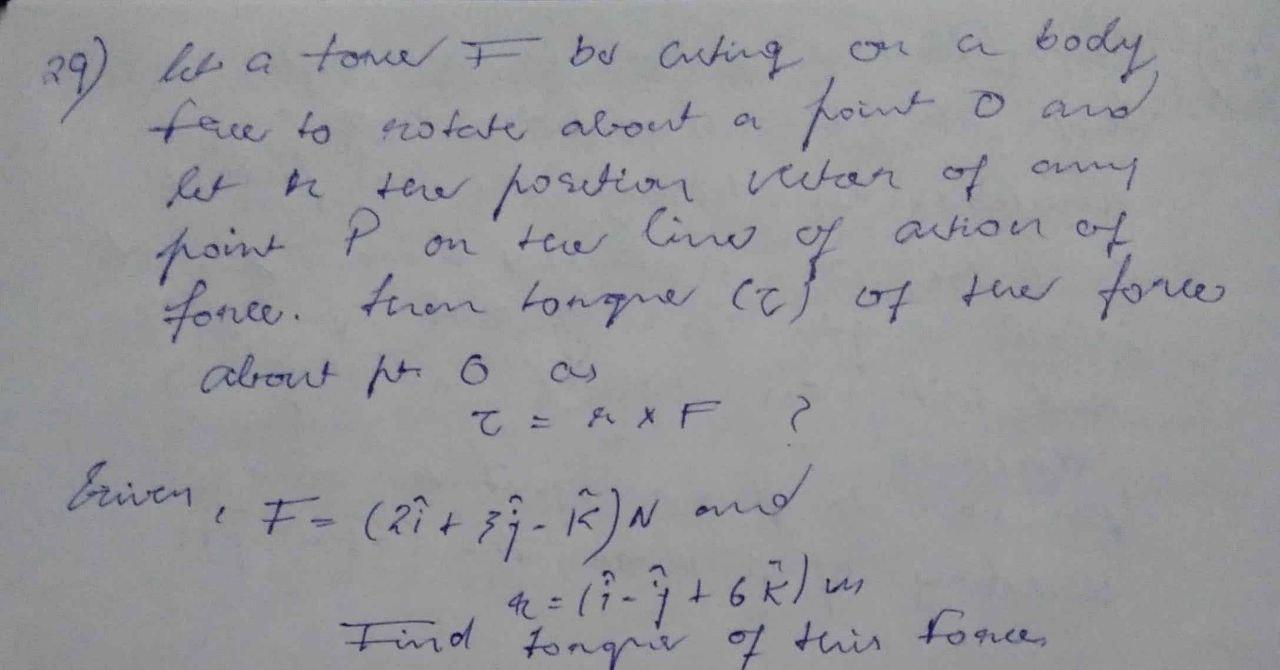 29) let a force F be acting on a body
free to rotate about a point O and
let r the position vector of any
point P on the line of action of
force. then torque (τ) of the force
about pt. O as
τ = r x F ?
Given, F = (2î + 3ĵ - k̂) N and
r = (î - ĵ + 6 k̂) m
Find torque of this force